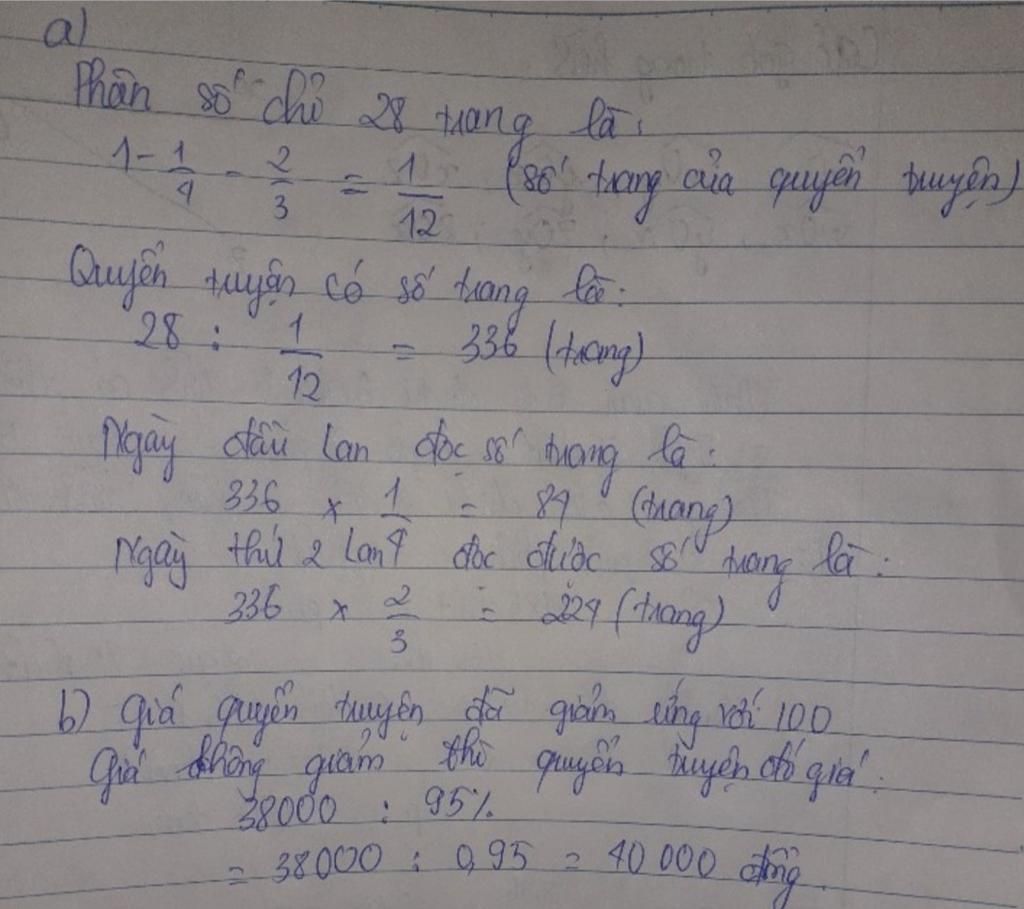 a)
Phân số chỉ 28 trang là:
1 - 1/4 - 2/3 = 1/12 (số trang của quyển truyện)
Quyển truyện có số trang là:
28 : 1/12 = 336 (trang)
Ngày đầu Lan đọc số trang là:
336 x 1/4 = 84 (trang)
Ngày thứ 2 Lan đọc được số trang là:
336 x 2/3 = 224 (trang)
b) Giá quyển truyện đã giảm ứng với 100
Giá không giảm thì quyển truyện đó giá:
38000 : 95%
= 38000 : 0,95 = 40 000 đồng.